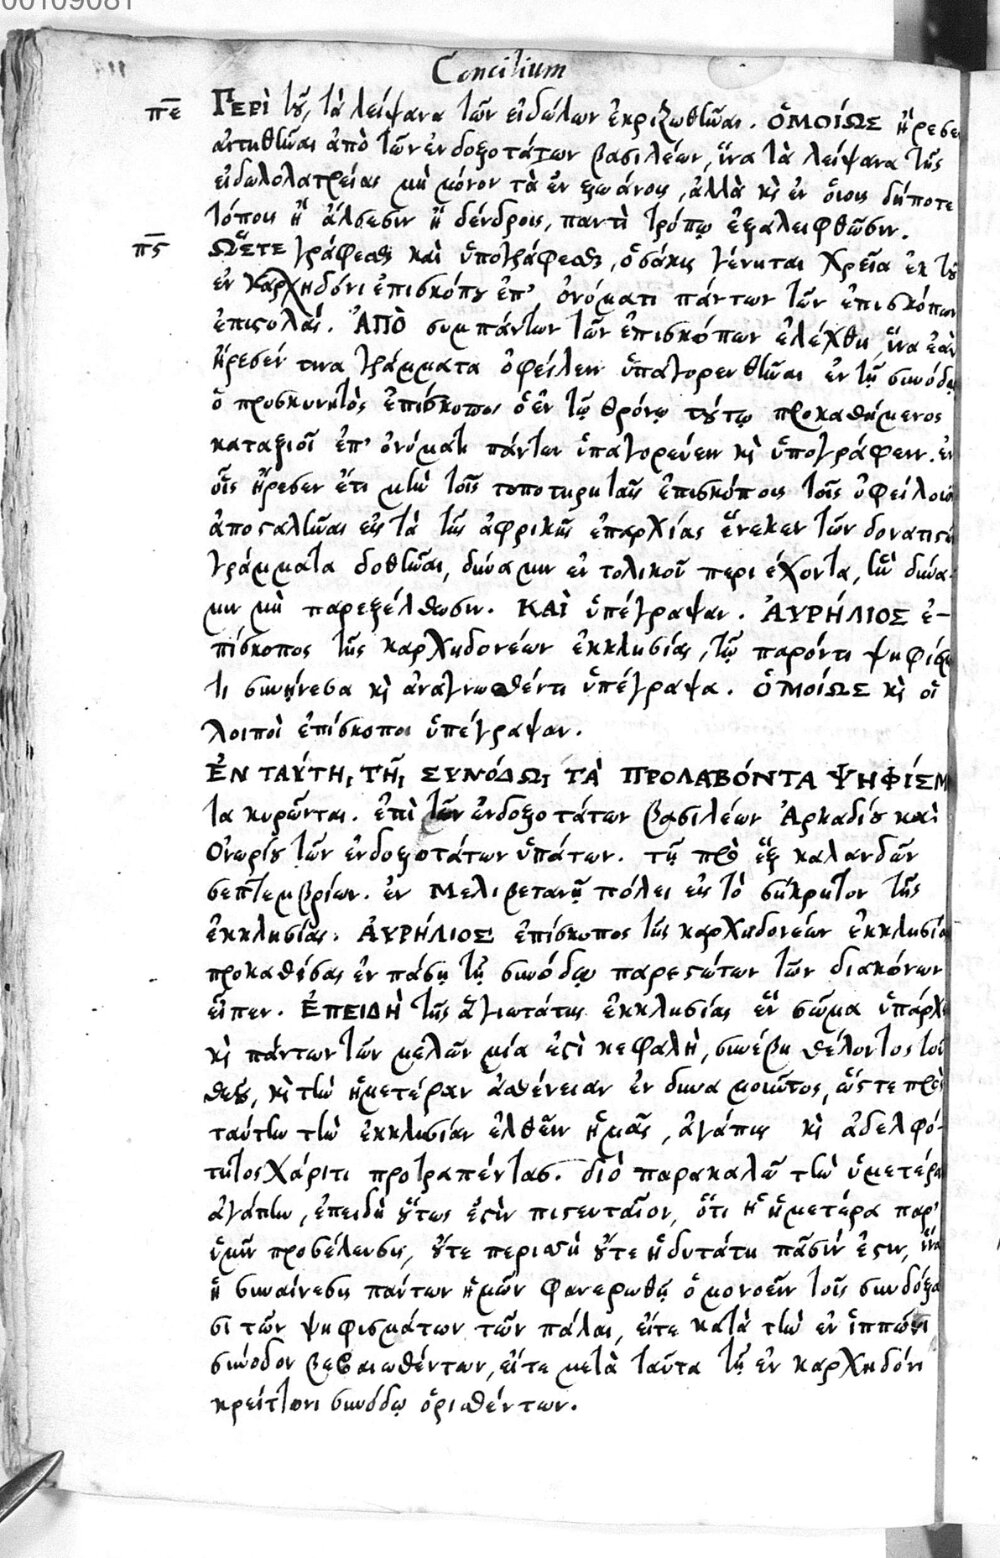 00109081
Concilium
πε Περὶ τοῦ, τὰ λείψανα τῶν εἰδώλων ἐκριζωθῆναι. ὉΜΟΊΩΣ ἤρεσεν
αἰτηθῆναι ἀπὸ τῶν ἐνδοξοτάτων βασιλέων, ἵνα τὰ λείψανα τῆς
εἰδωλολατρείας μὴ μόνον τὰ ἐν ξοάνοις, ἀλλὰ καὶ ἐν οἵοις δήποτε
τόποις ἢ ἄλσεσιν ἢ δένδροις, παντὶ τρόπῳ ἐξαλειφθῶσιν.
πς ὭΣΤΕ γράφεσθαι καὶ ὑπογράφεσθαι, ὁσάκις γένηται χρεῖα ἐκ τοῦ
ἐν Καρχηδόνι ἐπισκόπου ἐπ' ὀνόματι πάντων τῶν ἐπισκόπων
ἐπιστολάς. ἈΠῸ συμπάντων τῶν ἐπισκόπων ἐλέχθη, ἵνα ἐὰν
ἤρεσέν τινα γράμματα ὀφείλειν ὑπαγορευθῆναι ἐν τῇ συνόδῳ
ὁ προσκυνητὸς ἐπίσκοπος ὁ ἐν τῷ θρόνῳ τούτῳ προκαθήμενος
καταξιοῖ ἐπ' ὀνόματι πάντων ὑπαγορεύειν καὶ ὑπογράφειν. ἐν
οἷς ἤρεσεν ἔτι μὴν τοῖς τοποτηρηταῖς ἐπισκόποις τοῖς ὀφείλουσιν
ἀποσταλῆναι εἰς τὰ τῆς ἀφρικῆς ἐπαρχίας ἕνεκεν τῶν δονατιστῶν
γράμματα δοθῆναι, δύναμιν ἐντολικοῦ περιέχοντα, ἣν δύνα-
μιν μὴ παρεξέλθωσιν. ΚΑῚ ὑπέγραψαν. ἈΥΡΉΛΙΟΣ ἐ-
πίσκοπος τῆς καρχηδονέων ἐκκλησίας, τῷ παρόντι ψηφίσμα
τι συνῄνεσα καὶ ἀναγνωσθέντι ὑπέγραψα. ὉΜΟΊΩΣ καὶ οἱ
λοιποὶ ἐπίσκοποι ὑπέγραψαν.
ἘΝ ΤΑΎΤΗι ΤΗ͂ι ΣΥΝΌΔΩι ΤᾺ ΠΡΟΛΑΒΌΝΤΑ ΨΗΦΊΣΜ
τα κυρῶνται. ἐπὶ τῶν ἐνδοξοτάτων βασιλέων Ἀρκαδίου καὶ
Ὀνωρίου τῶν ἐνδοξοτάτων ὑπάτων. τῇ πρὸ ἓξ καλανδῶν
σεπτεμβρίων. ἐν Μελιβετανῇ πόλει εἰς τὸ σήκρητον τῆς
ἐκκλησίας. ἈΥΡΉΛΙΟΣ ἐπίσκοπος τῆς καρχηδονέων ἐκκλησίας
προκαθέσας ἐν πάσῃ τῇ συνόδῳ παρεστώτων τῶν διακόνων
εἶπεν. ἘΠΕΙΔῊ τῆς ἁγιωτάτης ἐκκλησίας ἓν σῶμα ὑπάρχει
καὶ πάντων τῶν μελῶν μία ἐστὶ κεφαλὴ, συνέβη θέλοντος τοῦ
θεοῦ, καὶ τὴν ἡμετέραν ἀσθένειαν ἐνδυναμοῦντος, ὥστε πρὸς
ταύτην τὴν ἐκκλησίαν ἐλθεῖν ἡμᾶς, ἀγάπης καὶ ἀδελφό-
τητος χάριτι προτραπέντας. διὸ παρακαλῶ τὴν ὑμετέραν
ἀγάπην, ἐπειδὴ οὕτως ἐστὶν πιστευταῖον, ὅτι ἡ ἡμετέρα παρ'
ὑμῖν προσέλευσις, οὔτε περισσὴ οὔτε ἡδυτάτη πᾶσίν ἐστιν, ἵνα
ἡ συναίνεσις πάντων ἡμῶν φανερωθῇ ὁμονοεῖν τοῖς συνδόξα
σι τῶν ψηφισμάτων τῶν πάλαι, εἴτε κατὰ τὴν ἐν ἱππῶνι
σύνοδον βεβαιωθέντων, εἴτε μετὰ ταῦτα τῇ ἐν καρχηδόνι
κρείττονι συνόδῳ ὁρισθέντων.